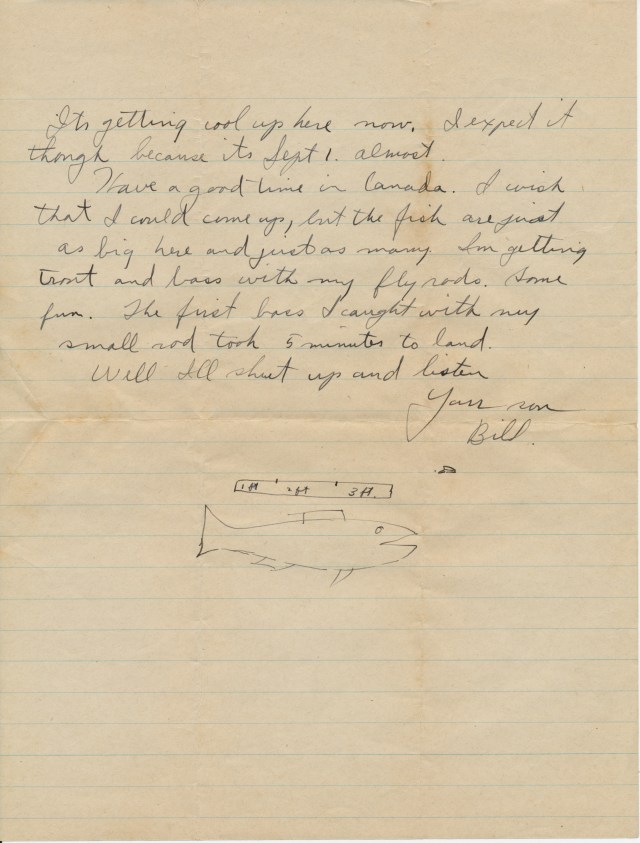 Its getting cool up here now. I expect it
though because its Sept 1. almost.
Have a good time in Canada. I wish
that I could come up, but the fish are just
as big here and just as many. Im getting
trout and bass with my fly rods. Some
fun. The first bass I caught with my
small rod took 5 minutes to land.
Well I'll shut up and listen
Your son
Bill.
1 ft 2 ft 3 ft.